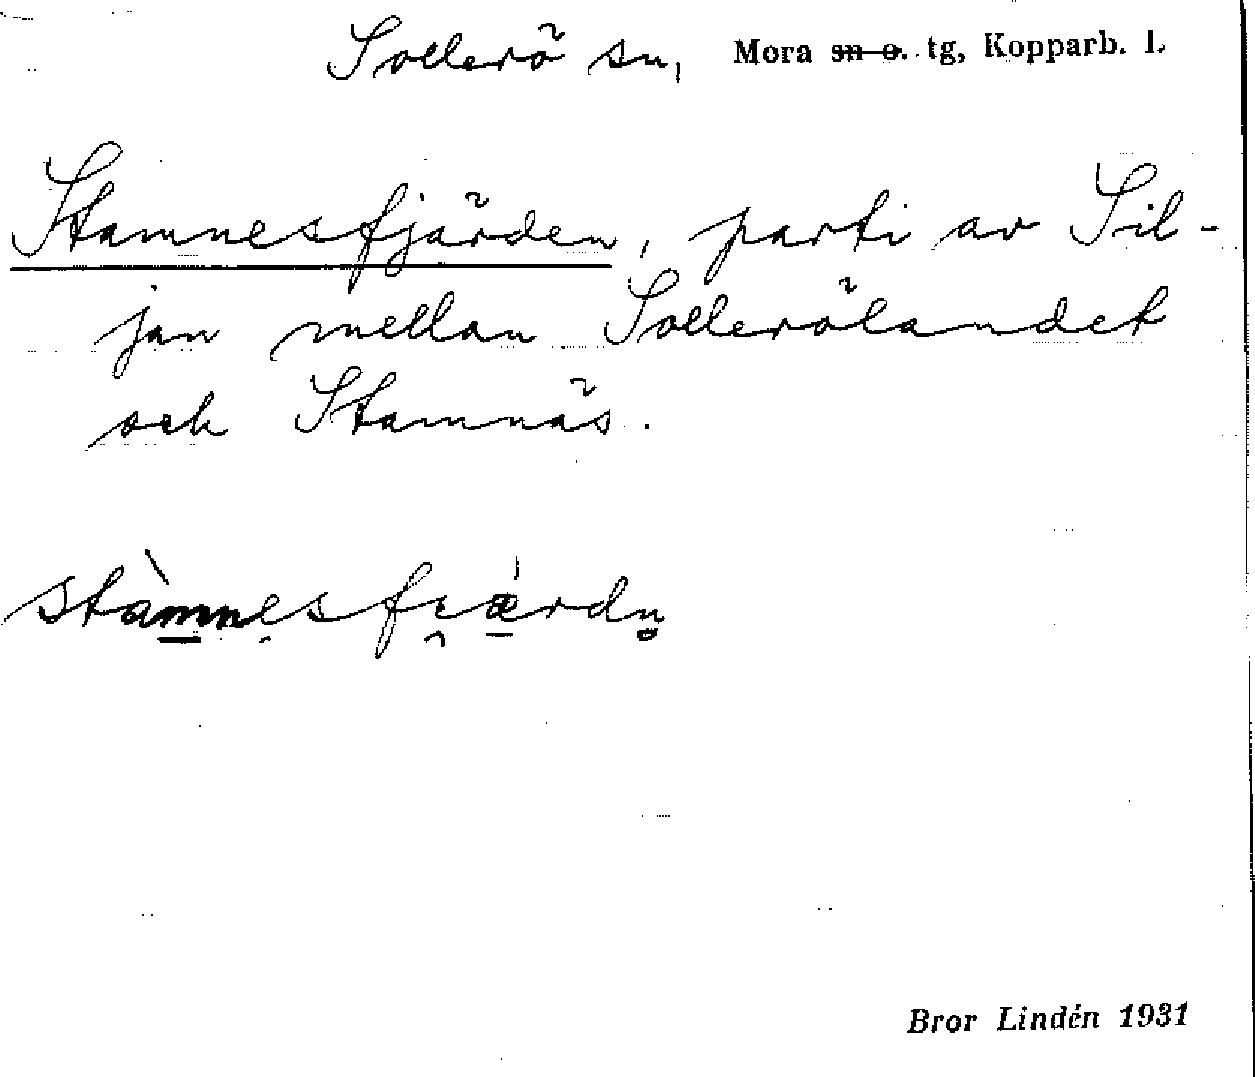 Sollerö sn, Mora sn o. tg, Kopparb. l.
Stamnesfjärden, parti av Sil-
jan mellan Sollerölandet
och Stamnäs.
stàmnesfi̯ǽrdn̥
Bror Lindén 1931